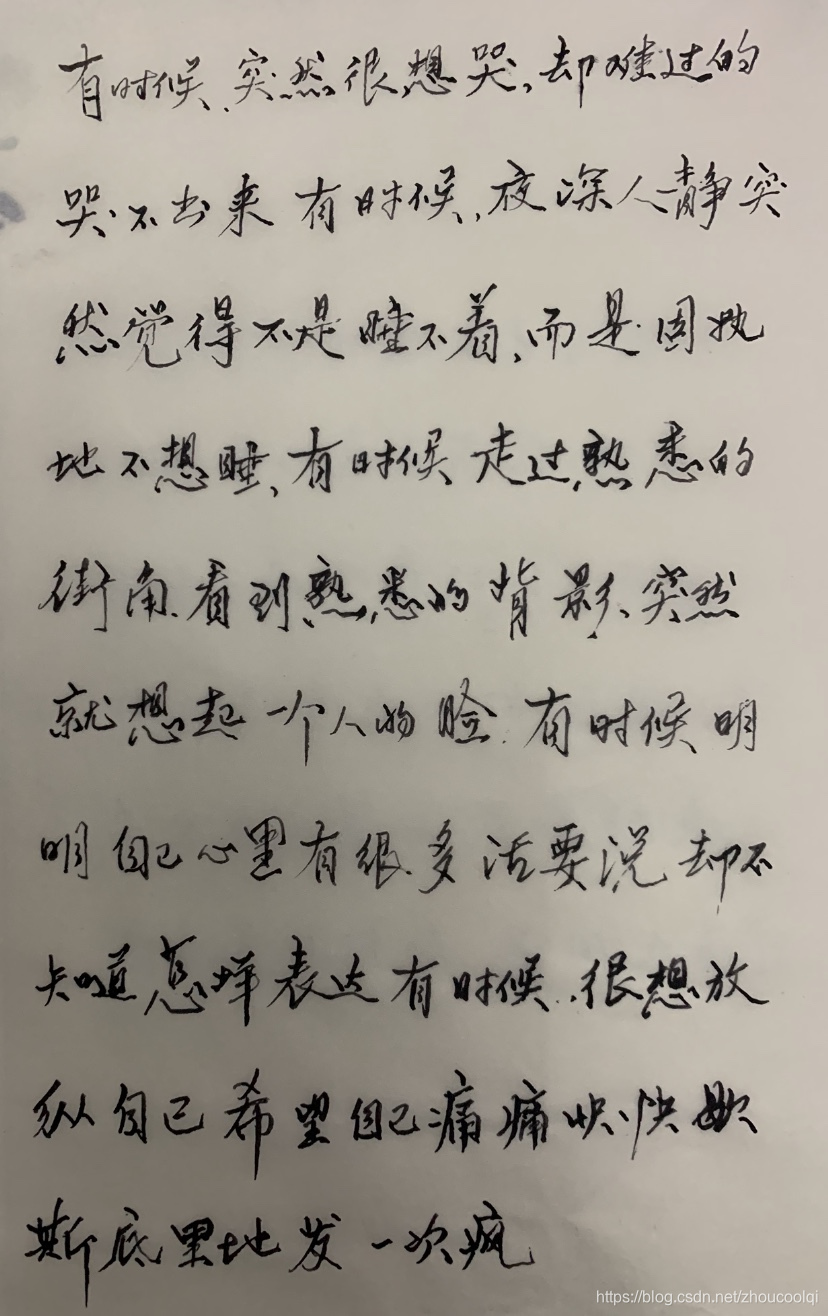 有时候,突然很想哭,却难过的
哭不出来 有时候,夜深人静突
然觉得不是睡不着,而是固执
地不想睡,有时候走过熟悉的
街角,看到熟悉的背影,突然
就想起一个人的脸.有时候明
明自己心里有很多话要说却不
知道怎样表达有时候,很想放
纵自己希望自己痛痛快快歇
斯底里地发一次疯
https://blog.csdn.net/zhoucoolqi